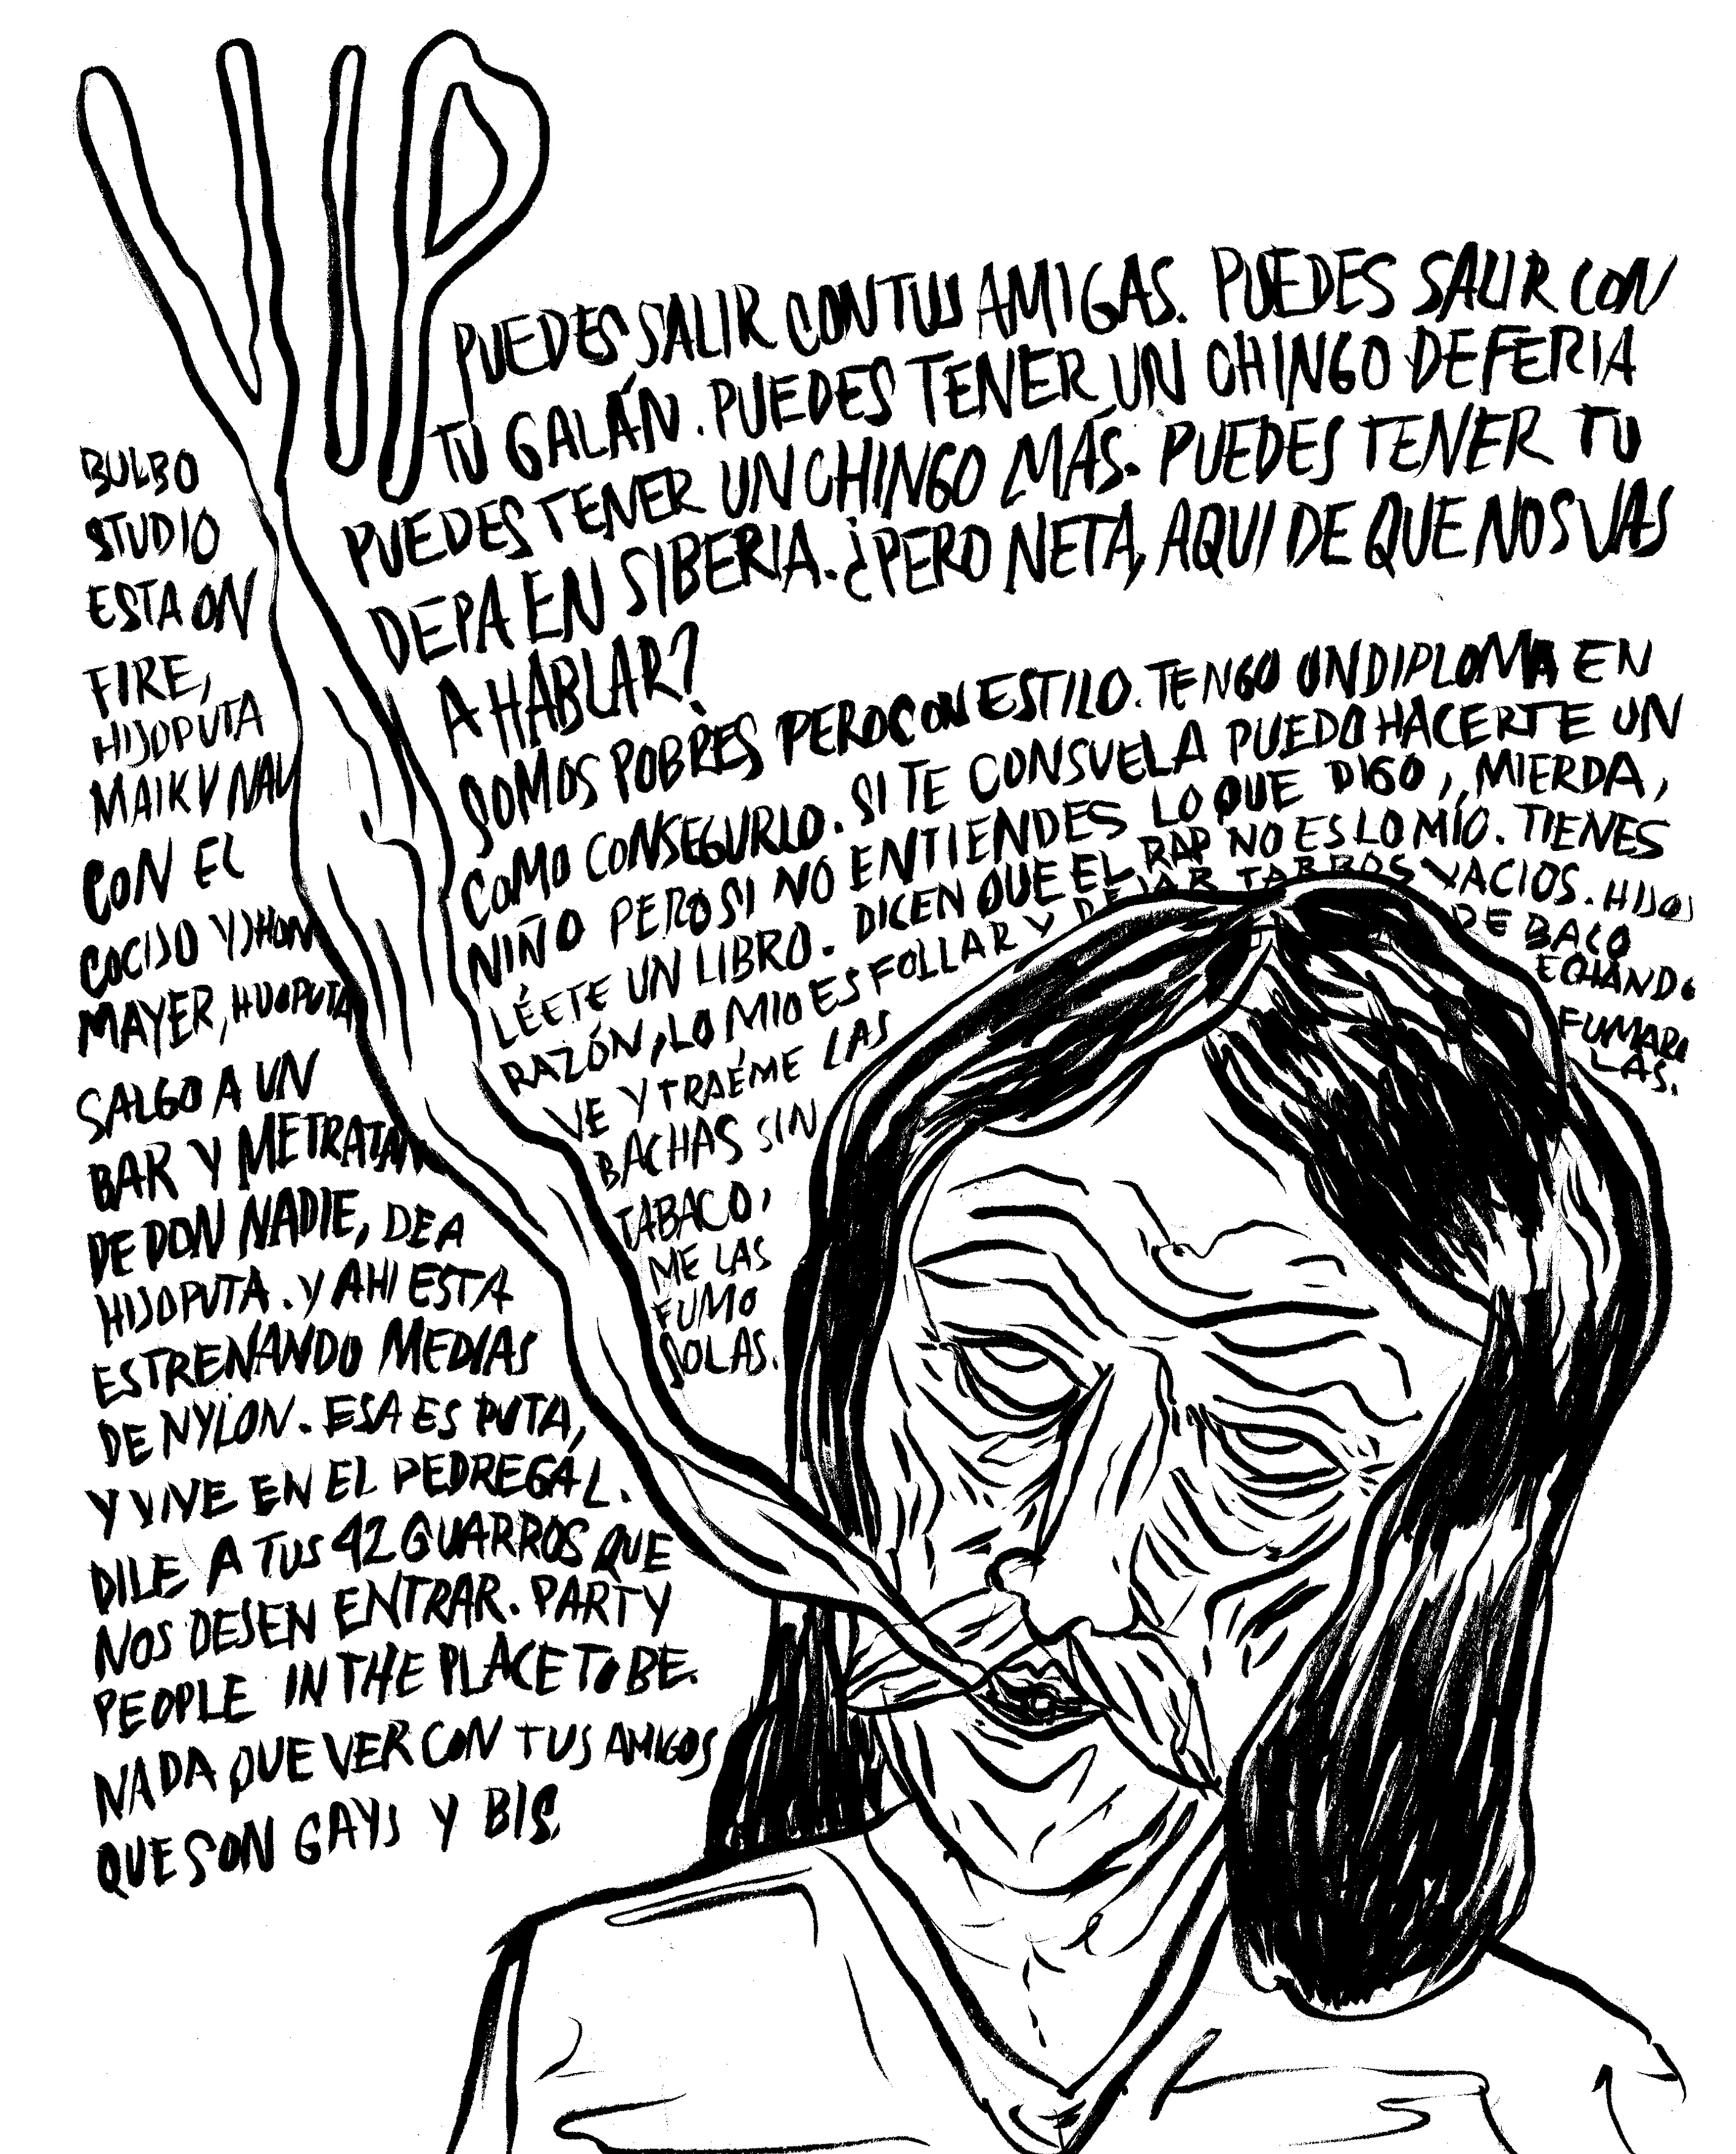 VIP
PUEDES SALIR CON TUS AMIGAS. PUEDES SALIR CON
TU GALÁN. PUEDES TENER UN CHINGO DE FERIA
PUEDES TENER UN CHINGO MÁS. PUEDES TENER TU
DEPA EN SIBERIA. ¿PERO NETA, AQUI DE QUE NOS VAS
A HABLAR?
SOMOS POBRES PERO CON ESTILO. TENGO UN DIPLOMA EN
COMO CONSEGUIRLO. SI TE CONSUELA PUEDO HACERTE UN
NIÑO PERO SI NO ENTIENDES LO QUE DIGO, MIERDA,
LÉETE UN LIBRO. DICEN QUE EL RAP NO ES LO MÍO. TIENES
RAZÓN, LO MIO ES FOLLAR Y DEJAR TARROS VACIOS. HIJOS
DE BACO
ECHANDO
FUMARO
LAS.
VE Y TRAÉME LAS
BACHAS SIN
TABACO,
ME LAS
FUMO
SOLAS.
BULBO
STUDIO
ESTA ON
FIRE,
HIJOPUTA
MAIKY NAV
CON EL
COCIJO Y JHON
MAYER, HIJOPUTA
SALGO A UN
BAR Y ME TRATAN
DE DON NADIE, DE A
HIJOPUTA. Y AHI ESTA
ESTRENANDO MEDIAS
DE NYLON. ESA ES PUTA,
Y VIVE EN EL PEDREGAL.
DILE A TUS 42 GUARROS QUE
NOS DESEN ENTRAR. PARTY
PEOPLE IN THE PLACE TO BE.
NADA QUE VER CON TUS AMIGOS
QUE SON GAYS Y BIS.